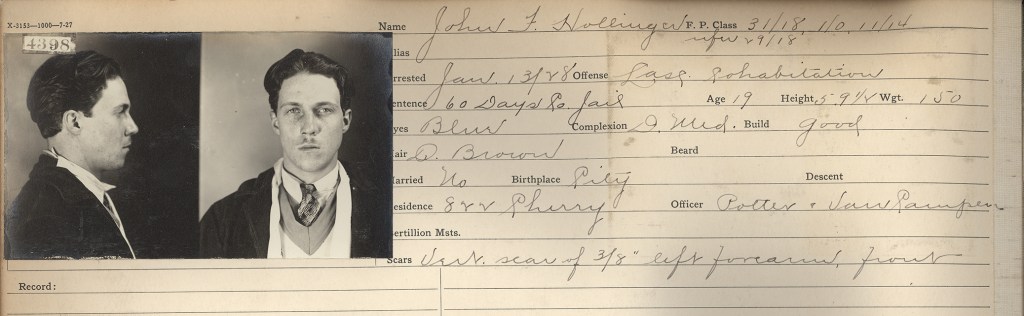 X-3153—1000—7-27
4398
Name John F. Hollinger F. P. Class 31/18, 1/0, 11/14
29/18
lias
rrested Jan. 13/28 Offense Lasc. Cohabitation
entence 60 Days Co. Jail Age 19 Height, 5-9 1/4 Wgt. 150
yes Blue Complexion D. Med. Build Good
air D. Brown Beard
arried No Birthplace City Descent
esidence 822 Cherry Officer Potter & Van Campen
ertillion Msts.
Scars Vert. scar of 3/8" left forearm, front
Record: